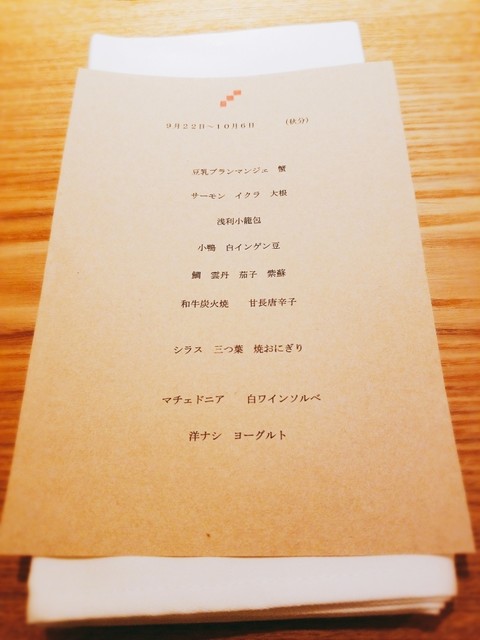 9月22日～10月6日　（秋分）
豆乳ブランマンジェ　蟹
サーモン　イクラ　大根
浅利小籠包
小鴨　白インゲン豆
鯛　雲丹　茄子　紫蘇
和牛炭火焼　甘長唐辛子
シラス　三つ葉　焼おにぎり
マチェドニア　白ワインソルベ
洋ナシ　ヨーグルト